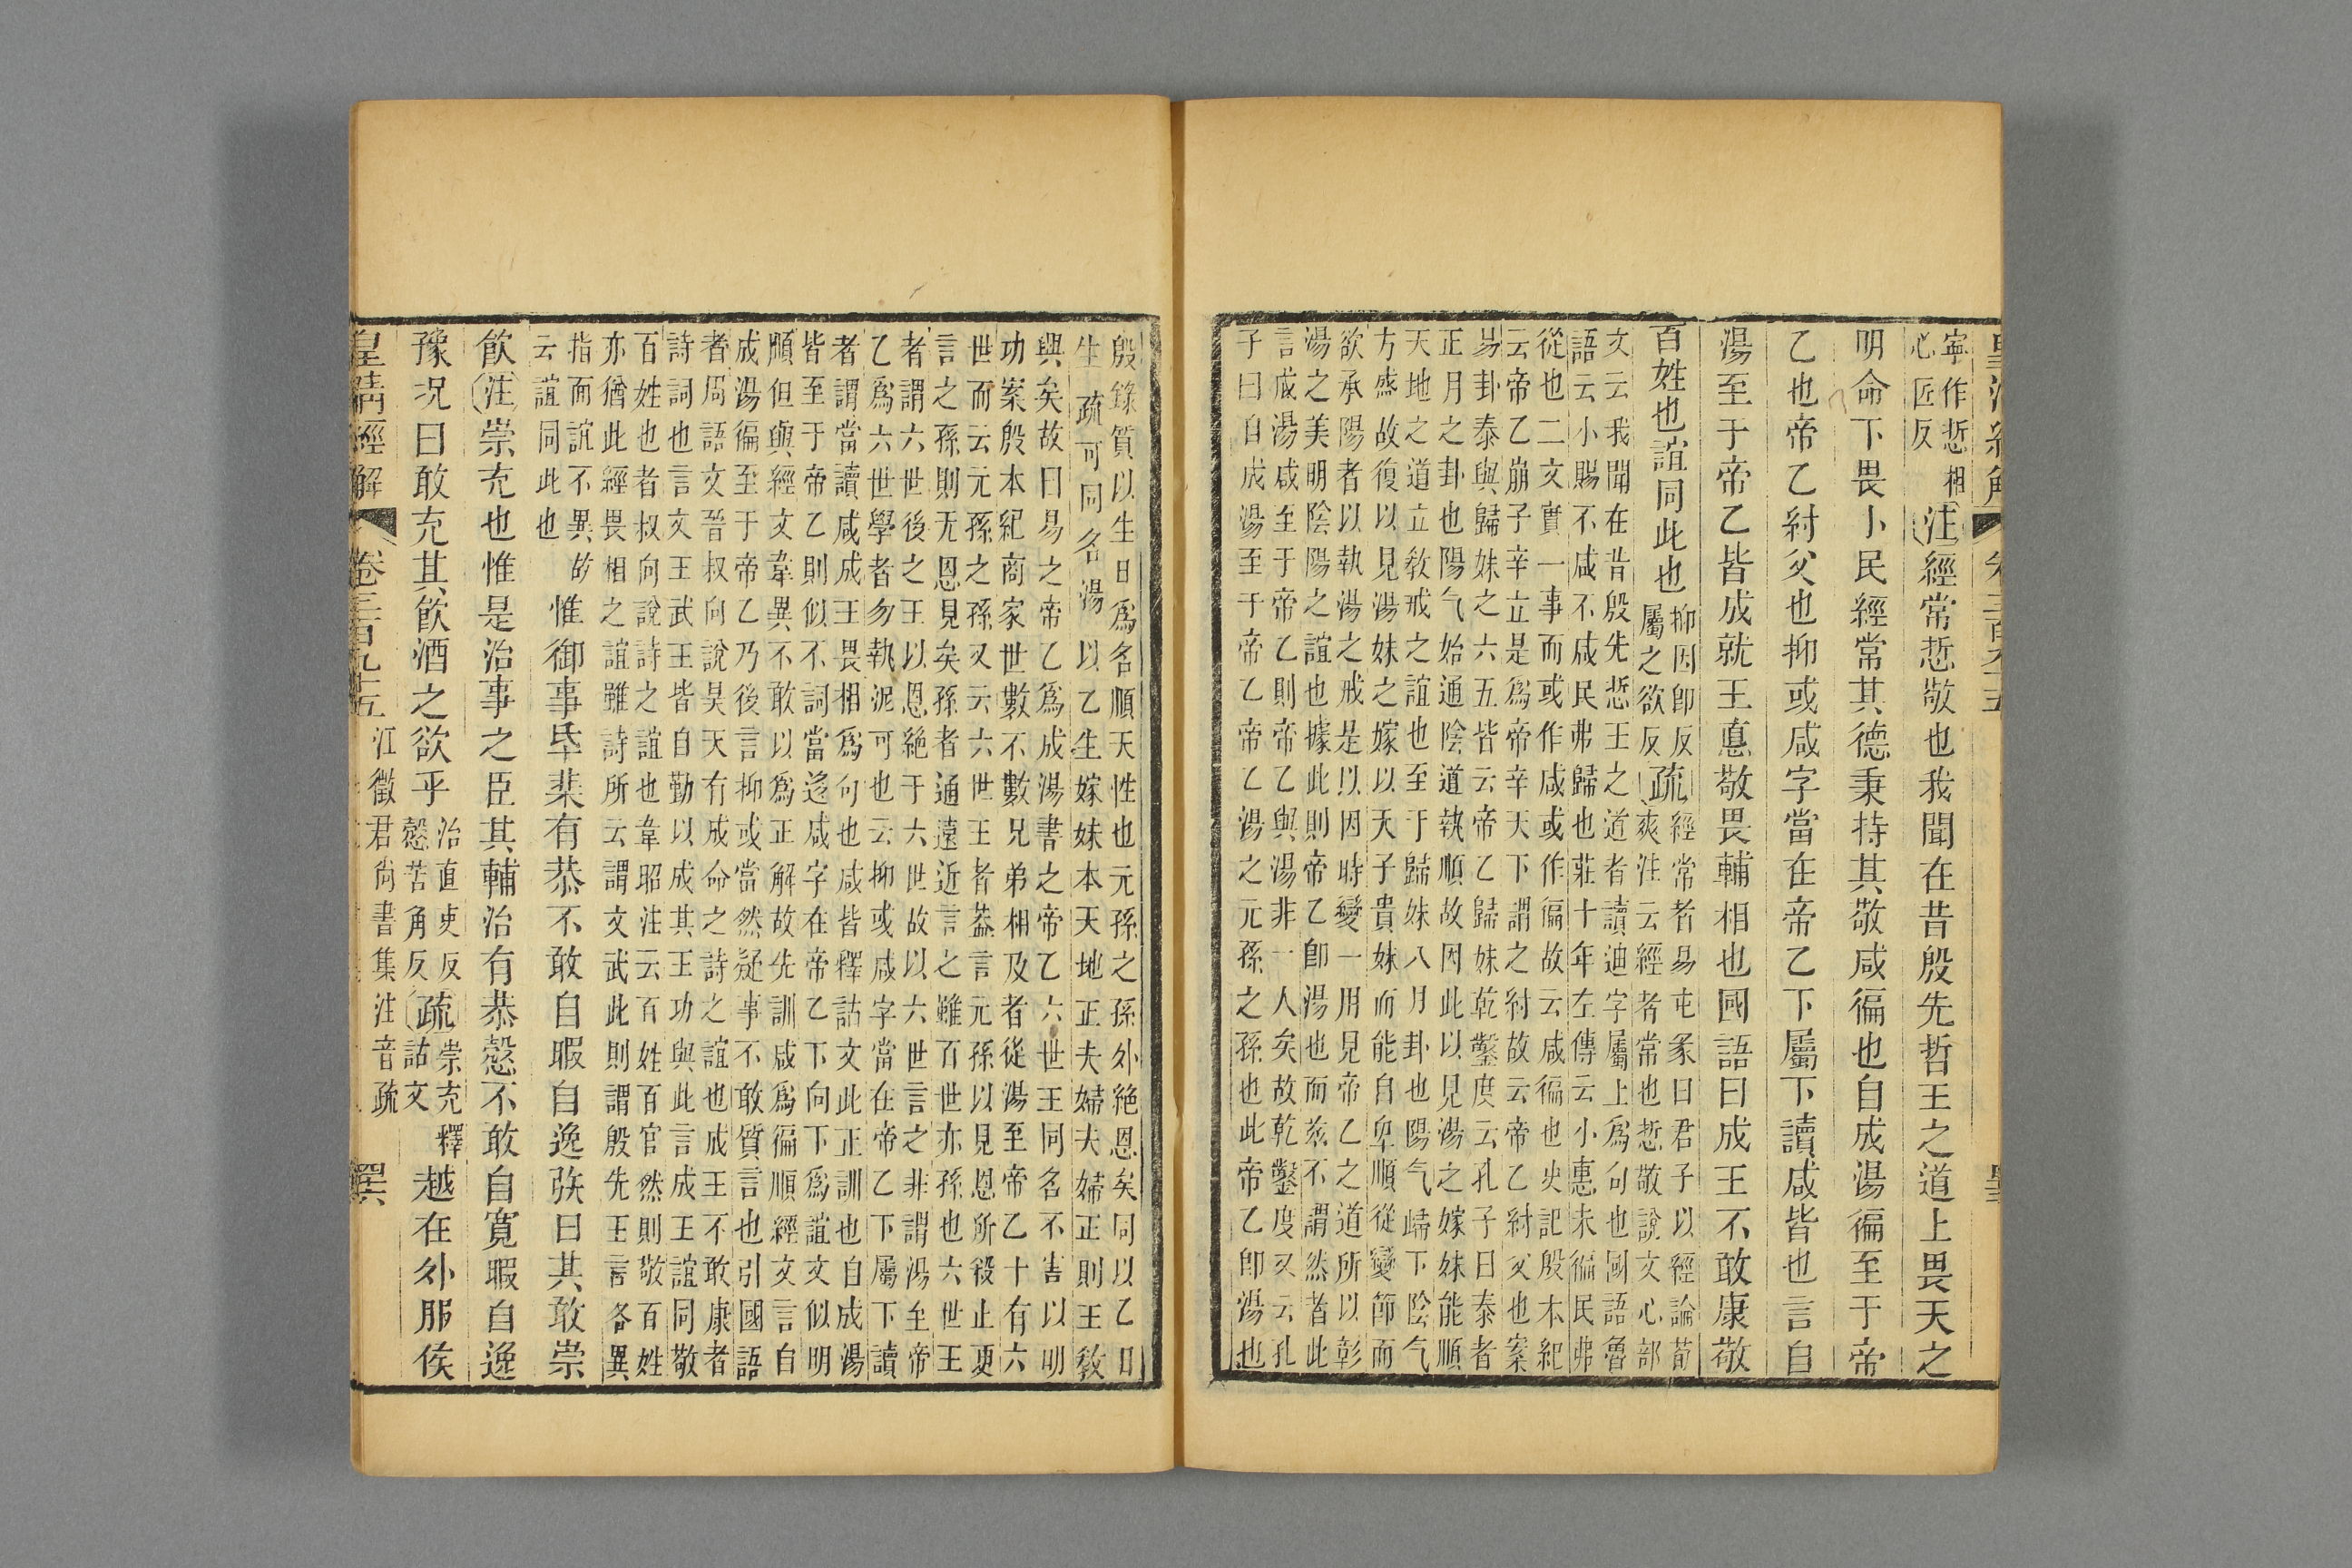 皇清經解
寧作悊相
心匠反
注經常悊敬也我聞在昔殷先哲王之道上畏天之
明命下畏小民經常其德秉持其敬咸徧也自成湯徧至于帝
乙也帝乙紂父也抑或咸字當在帝乙下屬下讀咸皆也言自
湯至于帝乙皆成就王悳敬畏輔相也國語曰成王不敢康敬
百姓也誼同此也
抑因卽反
屬之欲反
疏
經常者易屯彖曰君子以經論荀
爽注云經者常也悊敬說文心部
文云我聞在昔殷先悊王之道者讀迪字屬上爲句也國語魯
語云小賜不咸不咸民弗歸也莊十年左傳云小惠未徧民弗
從也二文實一事而或作咸或作徧故云咸徧也史記殷本紀
云帝乙崩子辛立是爲帝辛天下謂之紂故云帝乙紂父也案
易卦泰與歸妹之六五皆云帝乙歸妹乾鑿度云孔子曰泰者
正月之卦也陽气始通陰道執順故因此以見湯之嫁妹能順
天地之道立敎戒之誼也至于歸妹八月卦也陽气歸下陰气
方盛故復以見湯妹之嫁以天子貴妹而能自卑順從變節而
欲承陽者以執湯之戒是以因時變一用見帝乙之道所以彰
湯之美明陰陽之誼也據此則帝乙卽湯也而兹不謂然者此
言成湯咸至于帝乙則帝乙與湯非一人矣故乾鑿度又云孔
子曰自成湯至于帝乙帝乙湯之元孫之孫也此帝乙卽湯也
殷錄質以生日爲名順天性也元孫之孫外絕恩矣同以乙日
生疏可同名湯以乙生嫁妹本天地正夫婦夫婦正則王敎
興矣故曰易之帝乙爲成湯書之帝乙六世王同名不害以明
功案殷本紀商家世數不數兄弟相及者從湯至帝乙十有六
世而云元孫之孫又云六世王者葢言元孫以見恩所殺止更
言之孫則无恩見矣孫者通遠近言之雖百世亦孫也六世王
者謂六世後之王以恩絕于六世故以六世言之非謂湯至帝
乙爲六世學者勿執泥可也云抑或咸字當在帝乙下屬下讀
者謂當讀咸成王畏相爲句也咸皆釋詁文此正訓也自成湯
皆至于帝乙則似不詞當迻咸字在帝乙下向下爲誼文似明
順但與經文韋異不敢以爲正解故先訓咸爲徧順經文言自
成湯徧至于帝乙乃後言抑或當然疑事不敢質言也引國語
者周語文晉叔向說昊天有成命之詩之誼也成王不敢康者
詩詞也言文王武王皆自勤以成其王功與此言成王誼同敬
百姓也者叔向說詩之誼也韋昭注云百姓百官然則敬百姓
亦猶此經畏相之誼雖詩所云謂文武此則謂殷先王言各異
指而誼不異故
云誼同此也
惟御事厥棐有恭不敢自暇自逸矤曰其敢崇
飮注崇充也惟是治事之臣其輔治有恭愨不敢自寬暇自逸
豫况曰敢充其飮酒之欲乎
治直吏反
愨苦角反
疏
崇充釋
詁文
越在外服侯
皇清經解
卷三百九十五
江徵君尙書集注音疏